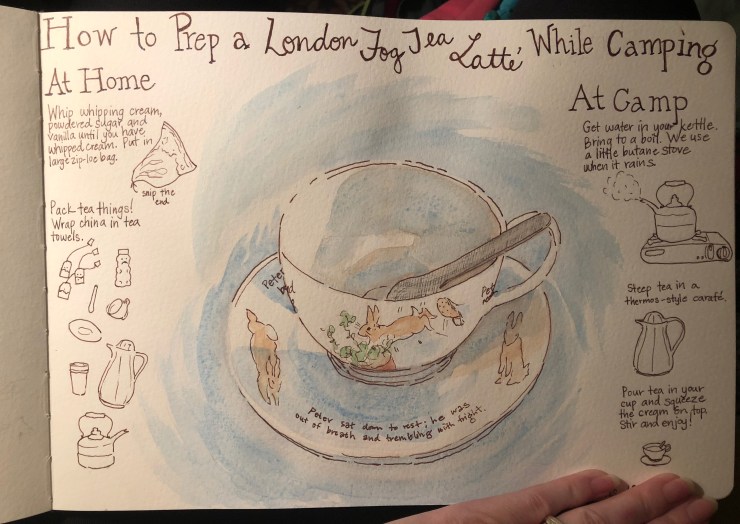 How to Prep a London Fog Tea Latté While Camping
At Home
Whip whipping cream,
powdered sugar, and
vanilla until you have
whipped cream. Put in
large zip-loc bag.
snip the
end
Pack tea things!
Wrap china in tea
towels.
Peter
Peter sat down to rest; he was
out of breath and trembling with fright.
At Camp
Get water in your kettle.
Bring to a boil. We use
a little butane stove
when it rains.
Steep tea in a
thermos-style carafe.
Pour tea in your
cup and squeeze
the cream on top.
Stir and enjoy!